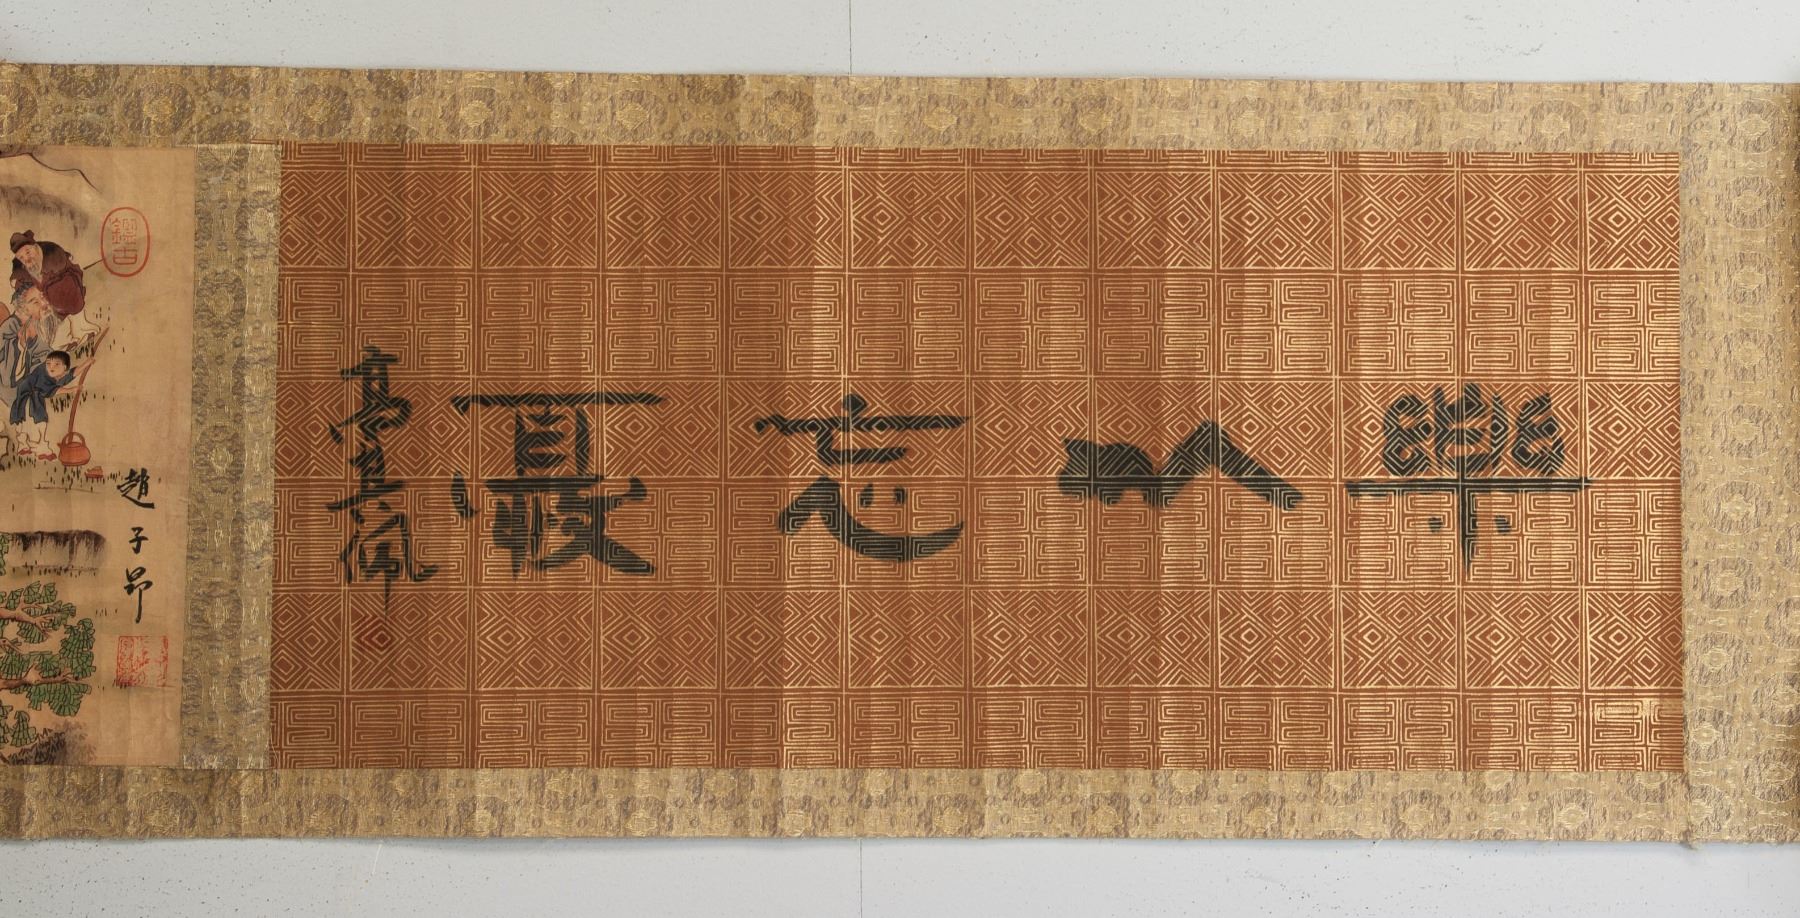 樂以忘憂
高其佩
鑑古
趙子昂